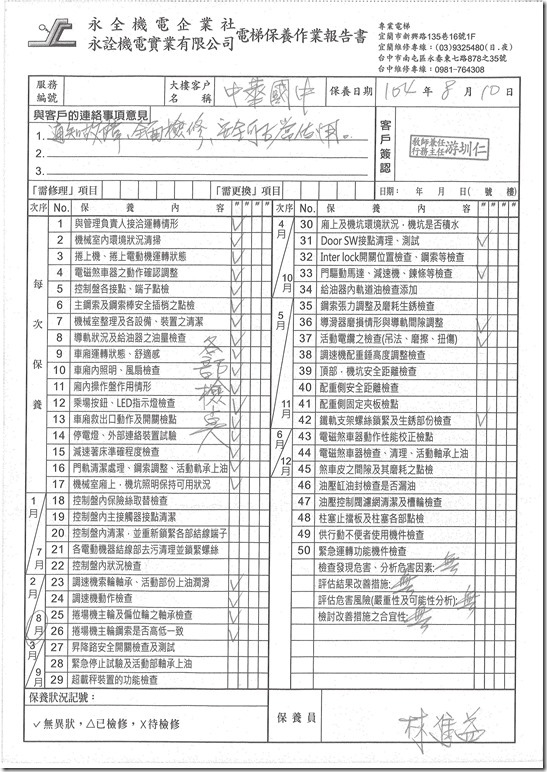 永全機電企業社
永詮機電實業有限公司 電梯保養作業報告書
專業電梯
宜蘭市新興路135巷16號1F
宜蘭維修專線：(03)9325480(日.夜)
台中市南屯區永春東七路878之35號
台中維修專線：0981-764308
服務編號 大樓客户名稱 中華國中 保養日期 104年8月10日
與客戶的連絡事項意見
1. 通知故障、全面檢修、安全可正常佔用。
2.
3.
客戶簽認
教師兼任行務主任 游圳仁
「需修理」項目 「需更換」項目 日期： 年 月 日( 號 樓)
次序 No. 保養內容 〃 〃 〃 〃 次序 No. 保養內容 〃 〃 〃 〃
每次保養
1 與管理負責人接洽運轉情形 ✓
2 機械室內環境狀況清掃 ✓
3 捲上機、捲上電動機運轉狀態 ✓
4 電磁煞車器之動作確認調整 ✓
5 控制盤各接點、端子點檢 ✓
6 主鋼索及鋼索棒安全插梢之點檢 ✓
7 機械室整理及各設備、裝置之清潔 ✓
8 導軌狀況及給油器之油量檢查 ✓
9 車廂運轉狀態、舒適感 ✓
10 車廂內照明、風扇檢查 ✓
11 廂內操作盤作用情形 ✓
12 乘場按鈕、LED指示燈檢查 ✓
13 車廂救出口動作及開關檢點 ✓
14 停電燈、外部連絡裝置試驗 ✓
15 減速著床準確程度檢查 ✓
16 門軌清潔處理、鋼索調整、活動軌承上油 ✓
17 機械室廂上，機坑照明保持可用狀況 ✓
各部檢点
1月
7月
18 控制盤內保險絲取替檢查
19 控制盤內主接觸器接點清潔
20 控制盤內清潔，並重新鎖緊各部結線端子
21 各電動機器結線部去污清理並鎖緊螺絲
22 控制盤內狀況檢查
2月
8月
23 調速機索輪軸承、活動部份上油潤滑 ✓
24 調速機動作檢查 ✓
25 捲場機主輪及偏位輪之軸承檢查 ✓
26 捲場機主輪鋼索是否高低一致 ✓
3月
9月
27 昇降路安全開關檢查及測試
28 緊急停止試驗及活動部軸承上油
29 超載秤裝置的功能檢查
4月
10月
30 廂上及機坑環境狀況，機坑是否積水
31 Door SW接點清理、測試 ✓
32 Inter lock開關位置檢查、鋼索等檢查
33 門驅動馬達、減速機、鍊條等檢查 ✓
34 給油器內軌道油檢查添加
5月
11月
35 鋼索張力調整及磨耗生銹檢查
36 導滑器磨損情形與導軌間隙調整 ✓
37 活動電纜之檢查(吊法、磨擦、扭傷) ✓
38 調速機配重錘高度調整檢查
39 頂部，機坑安全距離檢查
40 配重側安全距離檢查
41 配重側固定夾板檢點
42 鐵軌支架螺絲鎖緊及生銹部份檢查 ✓
6月
12月
43 電磁煞車器動作性能校正檢點
44 電磁煞車器檢查、清理、活動軸承上油
45 煞車皮之間隙及其磨耗之點檢
46 油壓缸油封檢查是否漏油
47 油壓控制閥濾網清潔及槽輪檢查
48 柱塞止擋板及柱塞各部點檢
49 供行動不便者使用機件檢查
50 緊急運轉功能機件檢查
檢查發現危害、分析危害因素：無
評估結果改善措施：無
評估危害風險(嚴重性及可能性分析)：無
檢討改善措施之合宜性：無
保養狀況記號：
✓無異狀，△已檢修，X待檢修
保養員 林進益